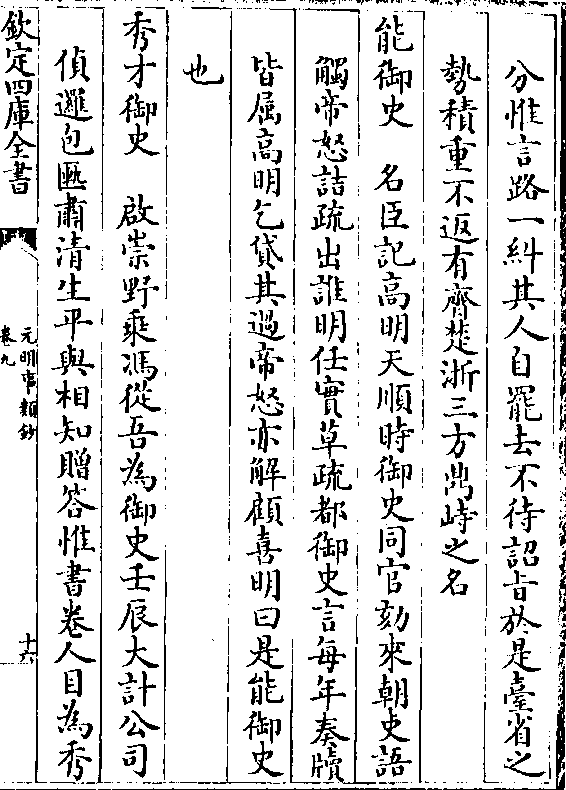 分惟言路一糾其人自罷去不待詔旨於是臺省之
勢積重不返有齊楚浙三方鼎峙之名
能御史　名臣記高明天順時御史同官劾來朝吏語
觸帝怒詰疏出誰明任實草疏都御史言每年奏牘
皆屬高明乞貸其過帝怒亦解顧喜明曰是能御史
也
秀才御史　啟崇野乘馮從吾為御史壬辰大計公司
偵邏包匭肅清生平與相知贈答惟書卷人目為秀
欽定四庫全書
元明事類鈔
卷九
十六